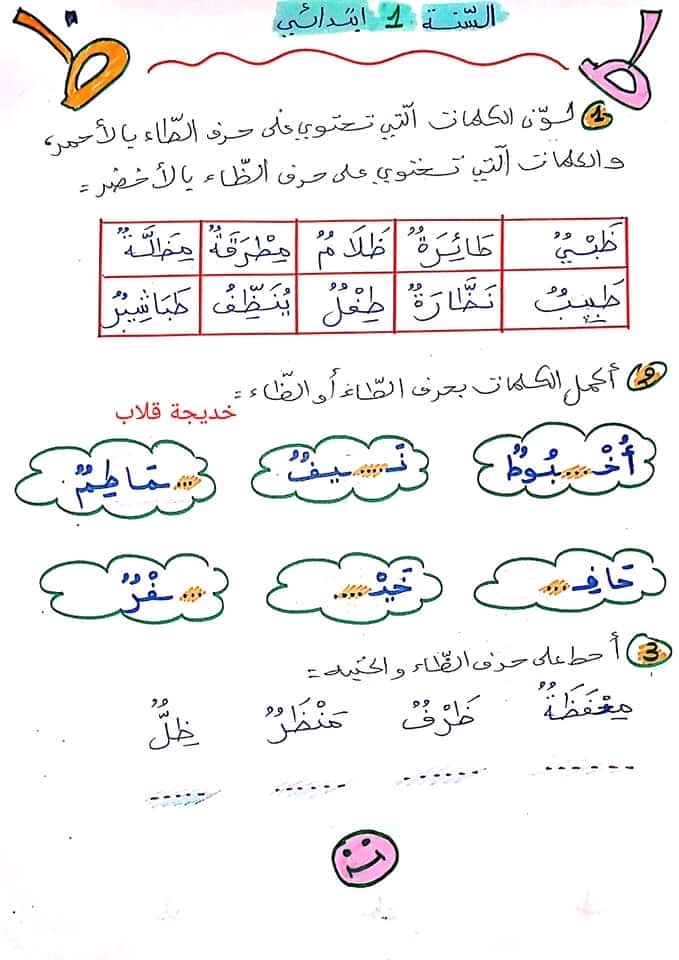 ظ
ط
السّنة 1 ابتدائي
1 لوّن الكلمات الّتي تحتوي على حرف الطّاء بالأحمر،
والكلمات الّتي تحتوي على حرف الظّاء بالأخضر =
ظَبْيٌ طَائِرَةٌ ظَلَامٌ مِطْرَقَةٌ مِظَلَّةٌ
طَبِيبٌ نَظَّارَةٌ طِفْلٌ يُنَظِّفُ طَبَاشِيرٌ
2 أكمل الكلمات بحرف الطّاء أو الظّاء =
خديجة قلاب
أُخْ....بُوطٌ نَـ....ـيفٌ ...مَاطِمٌ
حَافِـ... خَيْـ.... ...ـفْرٌ
3 أحط على حرف الظّاء و اكتبه =
مِحْفَظَةٌ ظَرْفٌ مَنْظَرٌ ظِلٌّ
........ ........ ........ ........